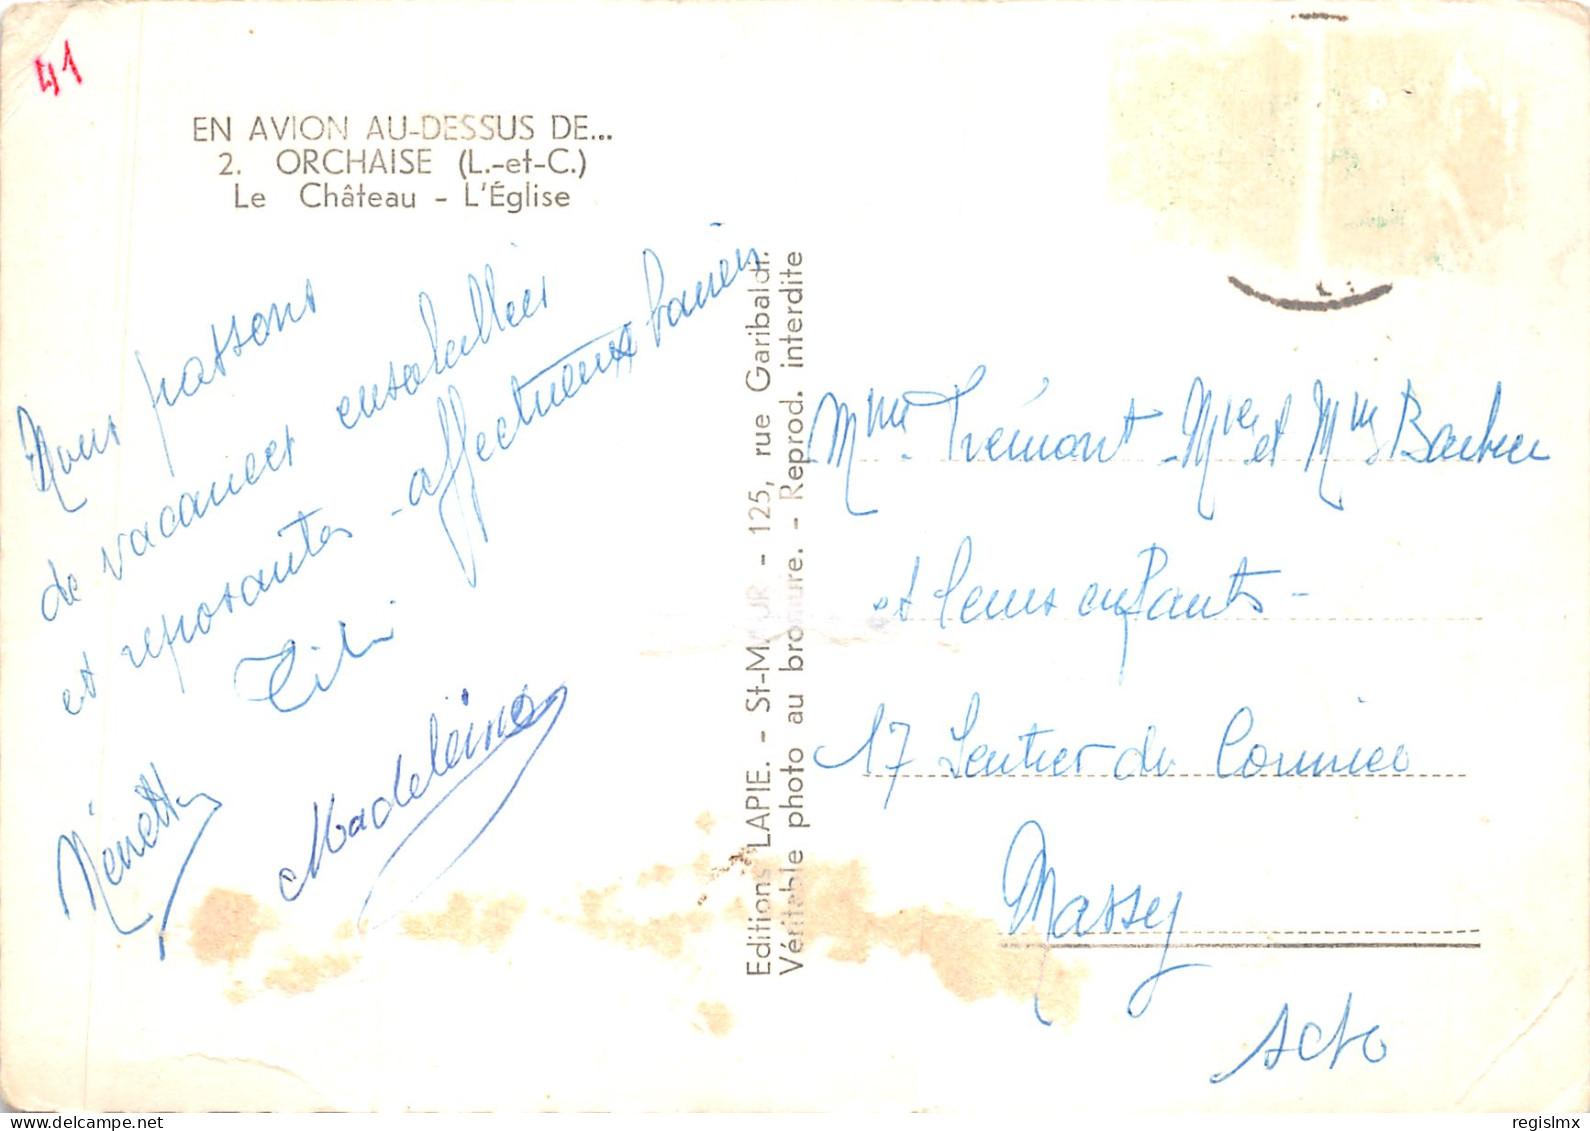 41
EN AVION AU-DESSUS DE...
2. ORCHAISE (L.-et-C.)
Le Château - L'Église
Nous passons
de vacances ensoleillées
et reposantes - affectueux baisers
Titi
Madeleine
Nénette
Editions LAPIE. - St-MAUR - 125, rue Garibaldi.
Véritable photo au bromure. - Reprod. interdite
Mme Trémont - Mr et Mme Barbier
et leurs enfants -
17 Sentier de Cormier
Massy
S et O
regislmx